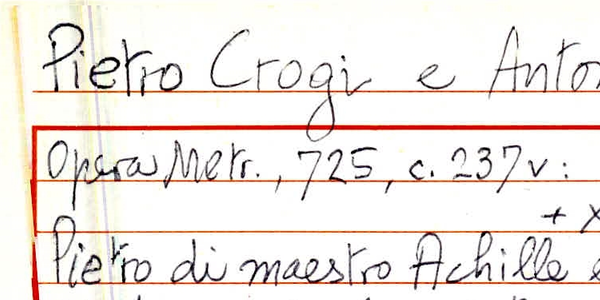 Pietro Crogi e Anton
Opera Metr., 725, c. 237v:
+ x
Pietro di maestro Achille e